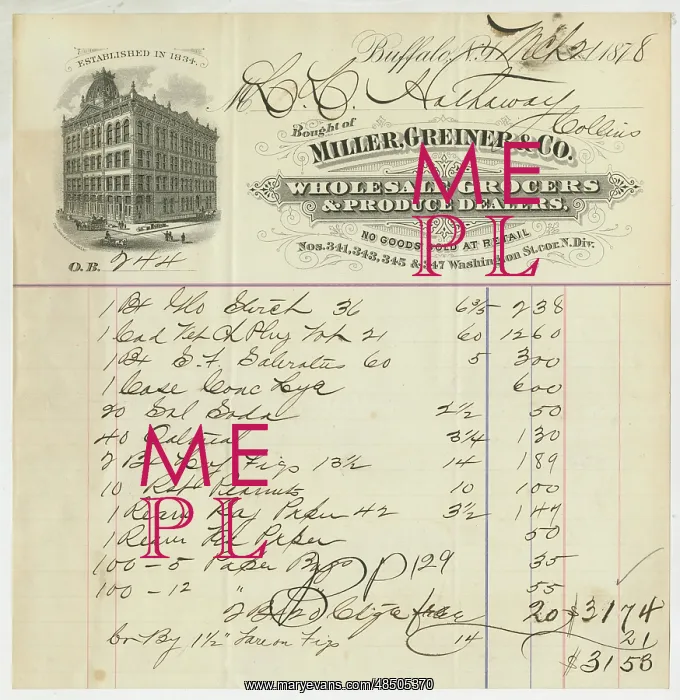 ESTABLISHED IN 1834.
Buffalo, N.Y. Mch 21 1878
M C. C. Hathaway
Collins
Bought of
MILLER, GREINER & CO.
WHOLESALE GROCERS
& PRODUCE DEALERS.
NO GOODS SOLD AT RETAIL
Nos. 341, 343, 345 & 347 Washington St. cor. N. Div.
O.B. 244
1 Bx Glo Starch 36 6 5/8 2 38
1 Cad Plug Tob 21 60 12 60
1 Bx Saleratus 60 5 3 00
1 Case Conc Lye 6 00
20 Sal Soda 2 1/2 50
40 Oatmeal 3 1/4 1 30
2 B Figs 13 1/2 14 1 89
10 Peanuts 10 1 00
1 Ream Rag Paper 42 3 1/2 1 47
1 Ream Paper 50
100 - 5 Paper Bags 35
100 - 12 " 55
P 129
2 20 $31 74
Cr By 1 1/2" Tare on Figs 14 21
$31 53
ME
PL
ME
PL
www.maryevans.com/48505370